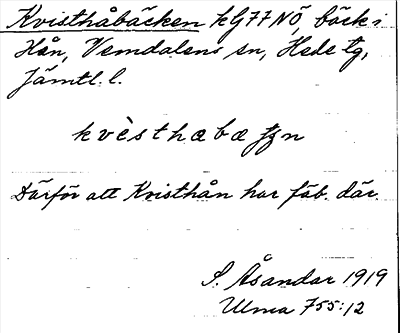 Kvisthåbäcken kG77NÖ, bäck i
Hån, Vemdalens sn, Hede tg,
Jämtl. l.
kvèsthæbæ
Därför att Kvisthån har fäb. där.
S. Åsandar 1919
Ulma 755:12